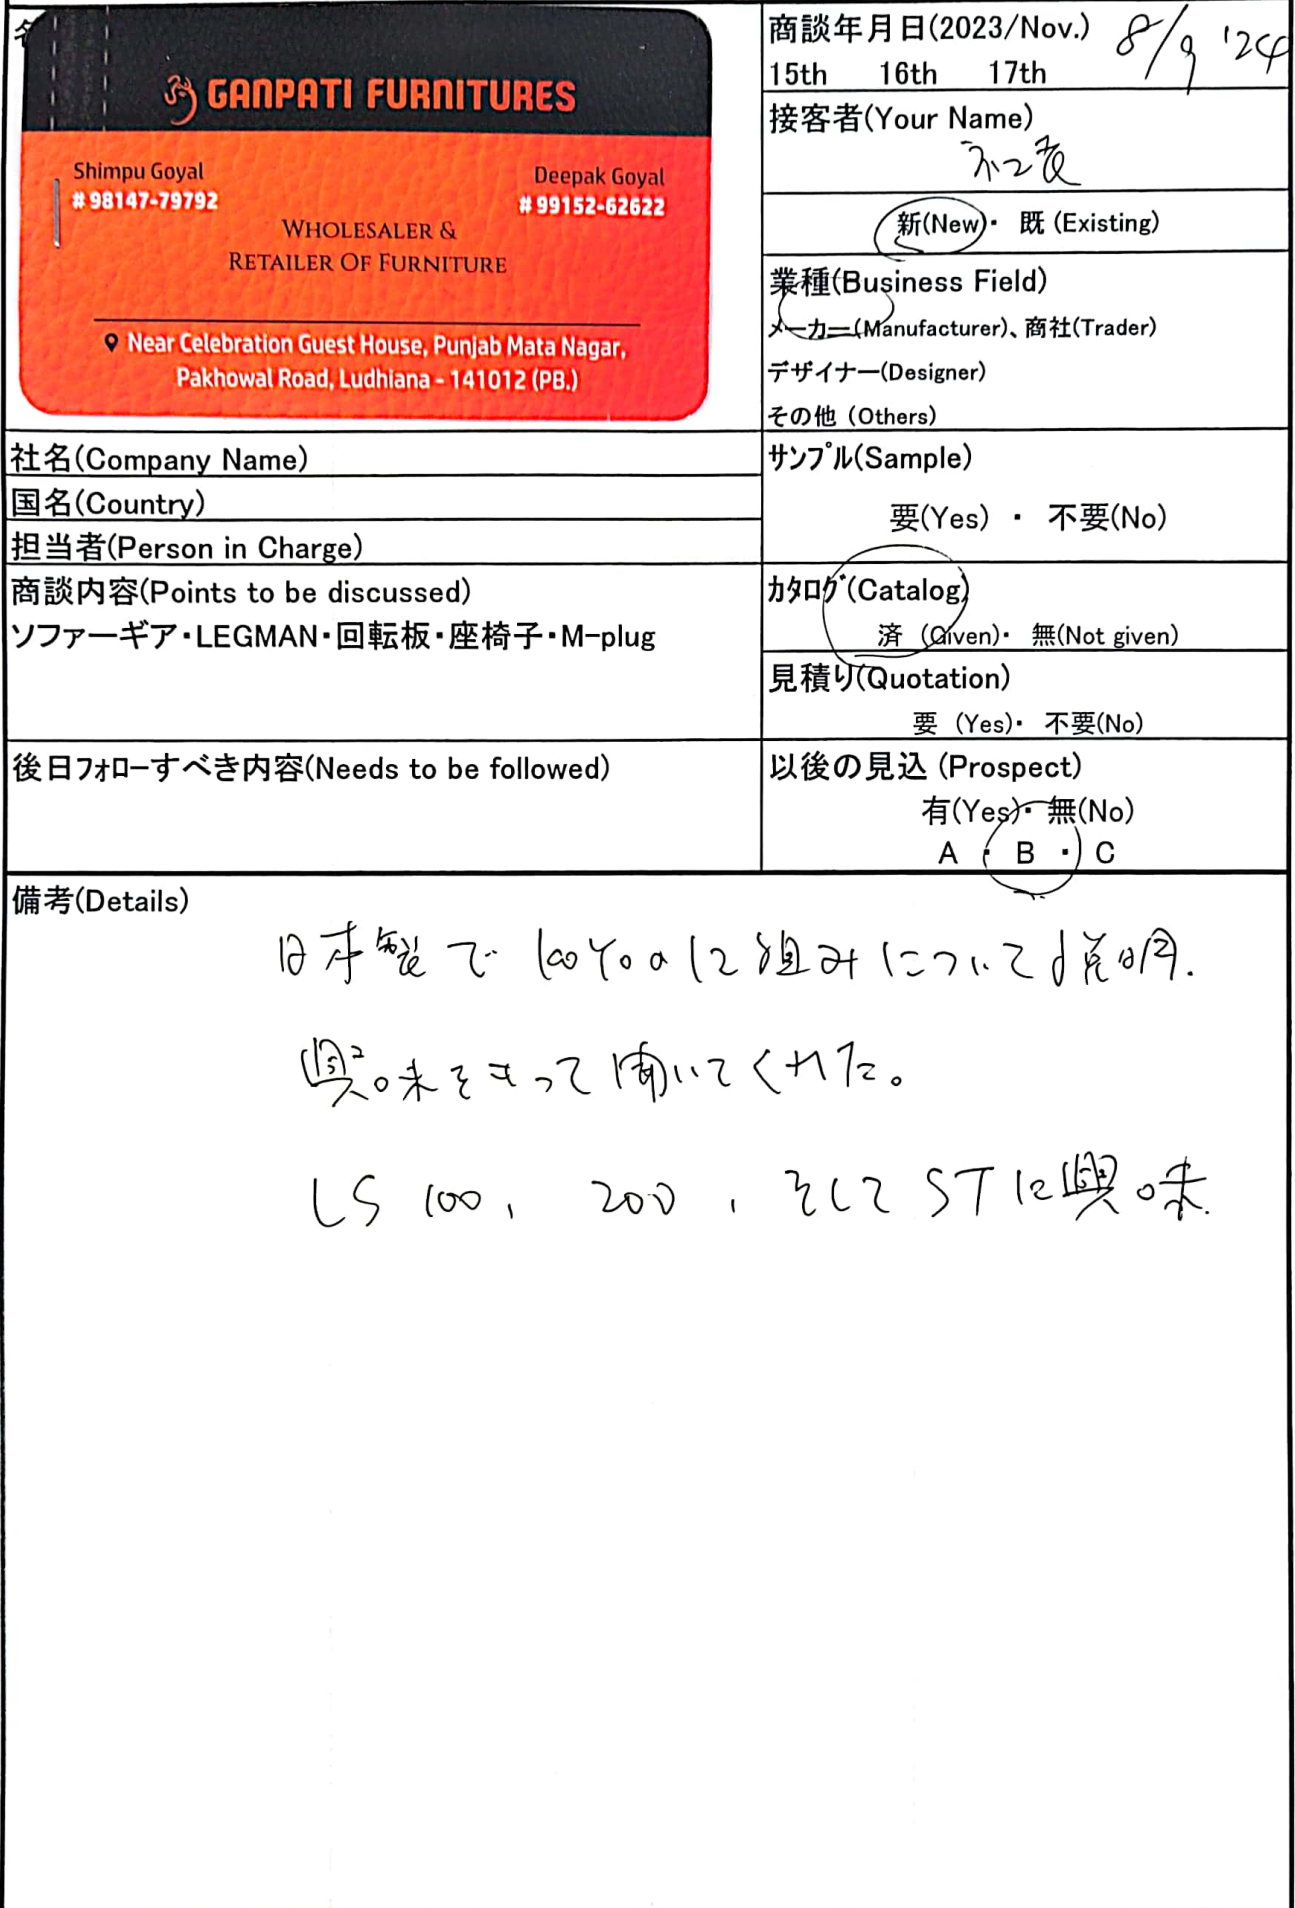 名
GANPATI FURNITURES
Shimpu Goyal
# 98147-79792
Deepak Goyal
# 99152-62622
WHOLESALER &
RETAILER OF FURNITURE
Near Celebration Guest House, Punjab Mata Nagar,
Pakhowal Road, Ludhiana - 141012 (PB.)
商談年月日(2023/Nov.) 8/9 '24
15th 16th 17th
接客者(Your Name)
新(New)・ 既(Existing)
業種(Business Field)
メーカー(Manufacturer)、商社(Trader)
デザイナー(Designer)
その他 (Others)
社名(Company Name)
国名(Country)
担当者(Person in Charge)
サンプル(Sample)
要(Yes) ・ 不要(No)
商談内容(Points to be discussed)
ソファーギア・LEGMAN・回転板・座椅子・M-plug
カタログ(Catalog)
済 (Given)・ 無(Not given)
見積り(Quotation)
要 (Yes)・ 不要(No)
後日フォローすべき内容(Needs to be followed)
以後の見込 (Prospect)
有(Yes)・ 無(No)
A ・ B ・ C
備考(Details)
日本製で について説明.
興味をもって聞いてくれた。
LS 100, 200, そして STに興味.